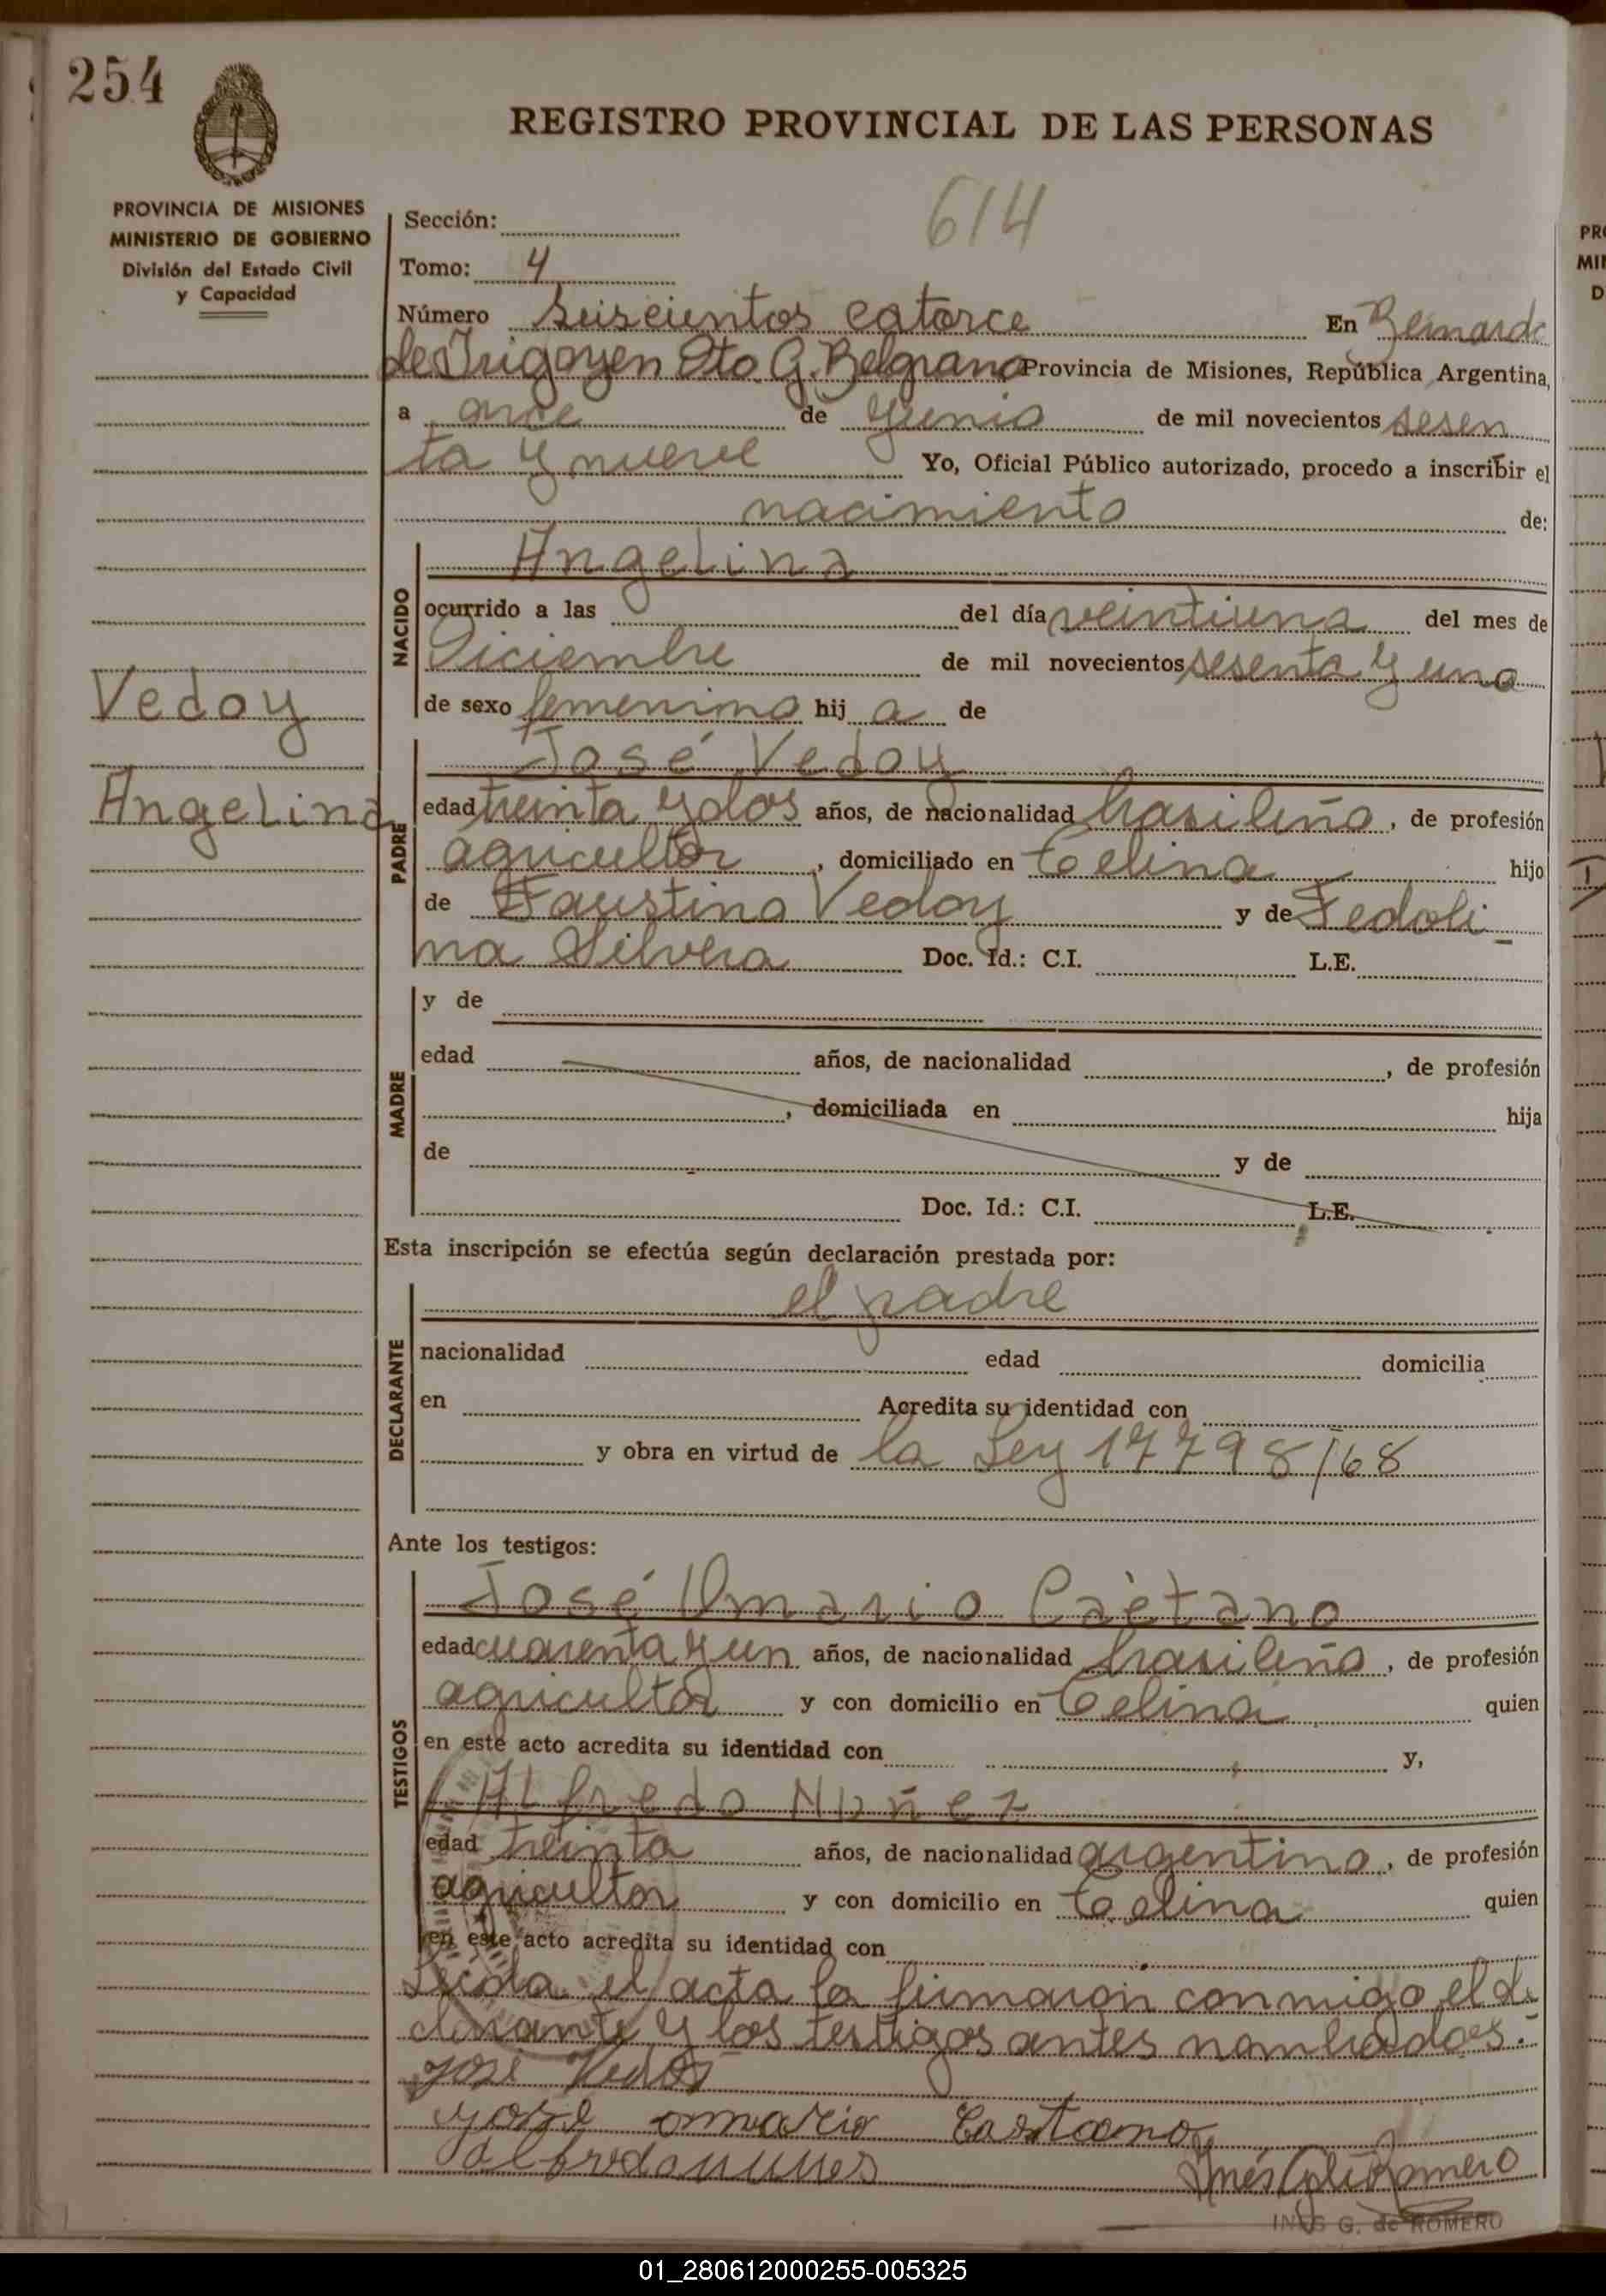 254
REGISTRO PROVINCIAL DE LAS PERSONAS
PROVINCIA DE MISIONES
MINISTERIO DE GOBIERNO
División del Estado Civil
y Capacidad
614
Sección:
Tomo: 4
Número Seiscientos catorce En Bernardo
de Irigoyen Dto. G. Belgrano Provincia de Misiones, República Argentina,
a once de Junio de mil novecientos sesen
ta y nueve Yo, Oficial Público autorizado, procedo a inscribir el
nacimiento de:
NACIDO
Angelina
ocurrido a las del día veintiuna del mes de
Diciembre de mil novecientos sesenta y uno
de sexo femenino hij a de
Vedoy
Angelina
PADRE
José Vedoy
edad treinta y dos años, de nacionalidad brasileño, de profesión
agricultor, domiciliado en Celina hijo
de Faustino Vedoy y de Fedoli
na Silvera Doc. Id.: C.I. L.E.
MADRE
y de
edad años, de nacionalidad , de profesión
, domiciliada en hija
de y de
Doc. Id.: C.I. L.E.
Esta inscripción se efectúa según declaración prestada por:
DECLARANTE
el padre
nacionalidad edad domicilia
en Acredita su identidad con
y obra en virtud de la Ley 17798/68
Ante los testigos:
TESTIGOS
José Omario Caetano
edad cuarenta y un años, de nacionalidad brasileño, de profesión
agricultor y con domicilio en Celina quien
en este acto acredita su identidad con y,
Alfredo Nuñez
edad treinta años, de nacionalidad argentino, de profesión
agricultor y con domicilio en Celina quien
en este acto acredita su identidad con
Leida el acta la firmaron conmigo el de
clarante y los testigos antes nombrados.-
José Vedoy
José omario Castano
alfredo nunes
Inés G. de Romero
INES G. de ROMERO
PRO
MIN
D
01_280612000255-005325